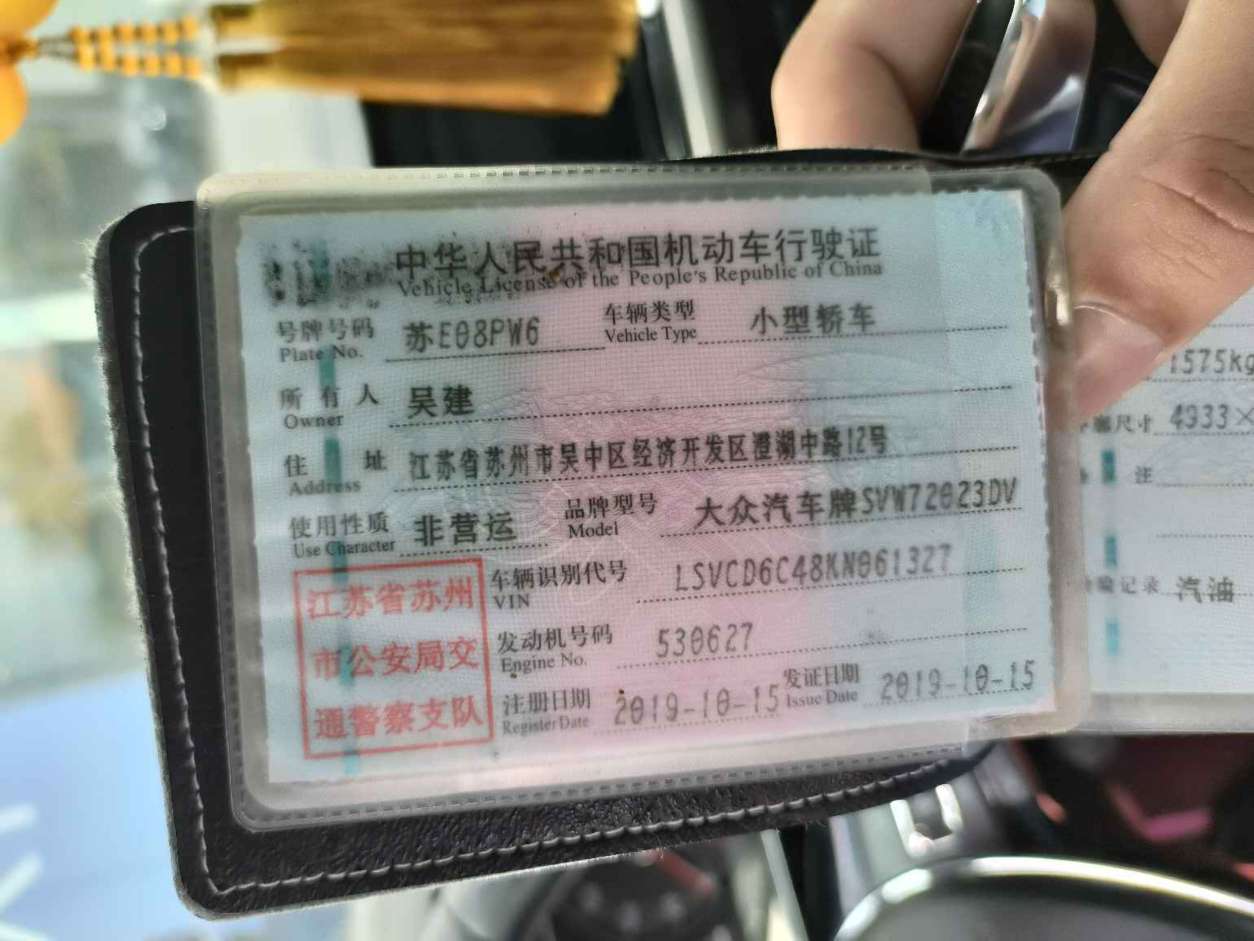 中华人民共和国机动车行驶证
Vehicle License of the People's Republic of China
号牌号码 苏E08PW6 车辆类型 小型轿车
Plate No. Vehicle Type
所有人 吴建
Owner
住址 江苏省苏州市吴中区经济开发区澄湖中路12号
Address
使用性质 非营运 品牌型号 大众汽车牌SVW72023DV
Use Character Model
江苏省苏州
市公安局交
通警察支队
车辆识别代号 LSVCD6C48KN061327
VIN
发动机号码 530627
Engine No.
注册日期 2019-10-15 发证日期 2019-10-15
Register Date Issue Date
1575kg
尺寸 4933×
注
记录 汽油